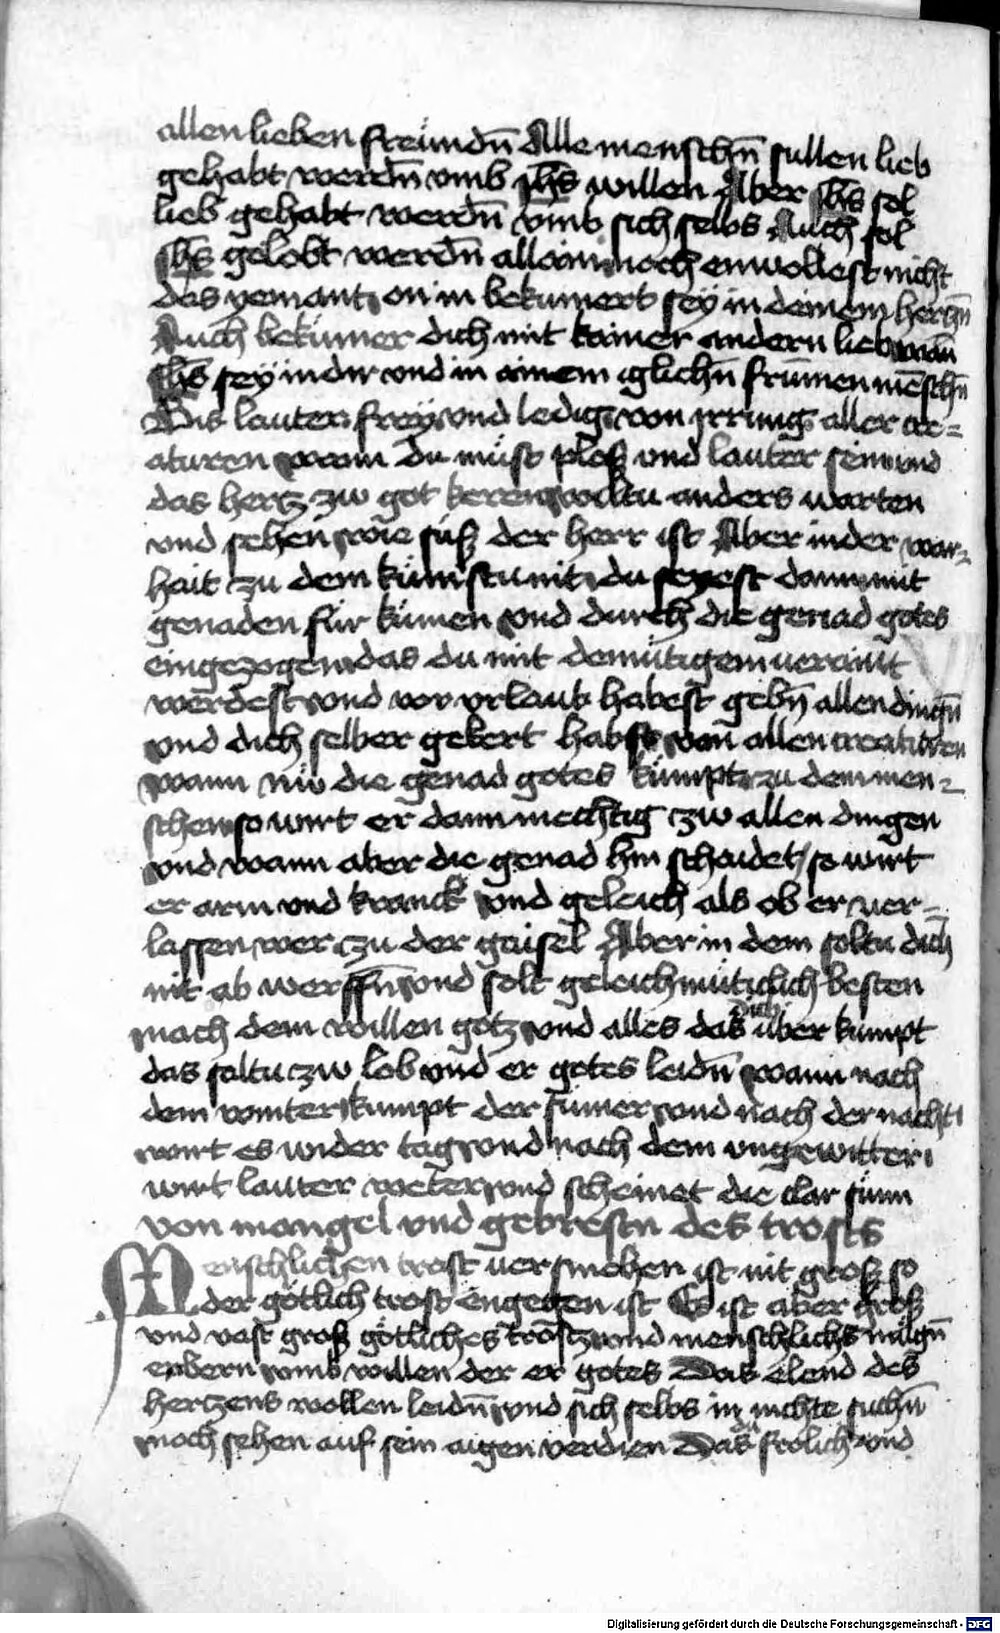 allen lieben freündn̄ Alle menschn̄ sullen lieb
gehabt werdn̄ vmb jhs̄ willen Aber jhs̄ sol
lieb gehabt werdn̄ vmb sich selbs Auch sol
jhs̄ gelobt werdn̄ allain noch enwollest nicht
das yemant on in bekumert sey in deinem herczn̄
Auch bekümer dich mit kainer andern lieb wan̄
jhs̄ sey in dir vnd in ainem iglichn̄ frümen mēschn̄
Bis lauter frey vnd ledig von jrrung aller cre=
aturen wann du must ploß vnd lauter sein vnd
das hertz zw got keren woltu anders warten
vnd sehen wie süß der herr ist Aber in der war=
hait zu dem kümstu nit du seyest dann mit
genaden für kümen vnd durch die genad gotes
eingezogen das du mit demütigem veraint
werdest vnd vor vrlaub habest gebn̄ allen dingn̄
vnd dich selber gekert habst von allen creaturen
wann nw die genad gotes kümpt zu dem men=
schen so wirt er dann mechtig zw allen dingen
vnd wann aber die genad hin schaidet / so wirt
er arm vnd kranck vnd geleich als ob er ver=
lassen wer czu der gaisel Aber in dem soltu dich
nit ab werffn̄ vnd solt geleichmüticlich besten
nach dem willen gotz vnd alles das dich über kumpt
das soltu zw lob vnd er gotes leidn̄ wann nach
dem winter kumpt der sumer vnd nach der nacht
wirt es wider tag vnd nach dem vngewitter
wirt lauter weter vnd scheinet die clar sunn
von mangel vnd gebresten des trosts
Menschlichen trost versmehen ist nit groß so
der götlich trost engegen ist Es ist aber groß
vnd vast groß götliches trostz vnd menschlichs mügn̄
enbern vmb willen der er gotes Das elend des
hertzens wollen leidn̄ vnd sich selbs in nichte suchn̄
noch sehen auf sein aigen verdien Das frölich vnd
Digitalisierung gefördert durch die Deutsche Forschungsgemeinschaft - DFG